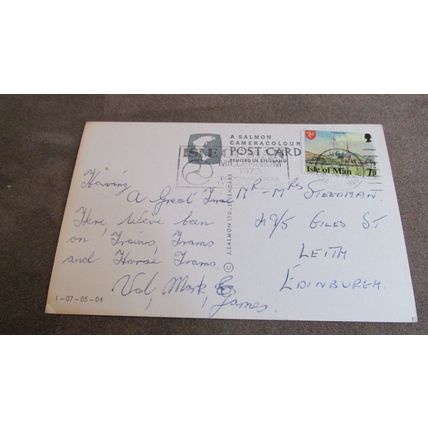 A SALMON
CAMERACOLOUR
POST CARD
PRINTED IN ENGLAND
ISLE
1979
Isle of Man
7p
Having
A Great Time
Here We've been
on Trains, Trams
and Horse Trams.
Val, Mark &
James.
Mr - Mrs STEEDMAN.
GILES ST
LEITH
EDINBURGH.
© J. SALMON LTD., SEVENOAKS
1-07-05-04